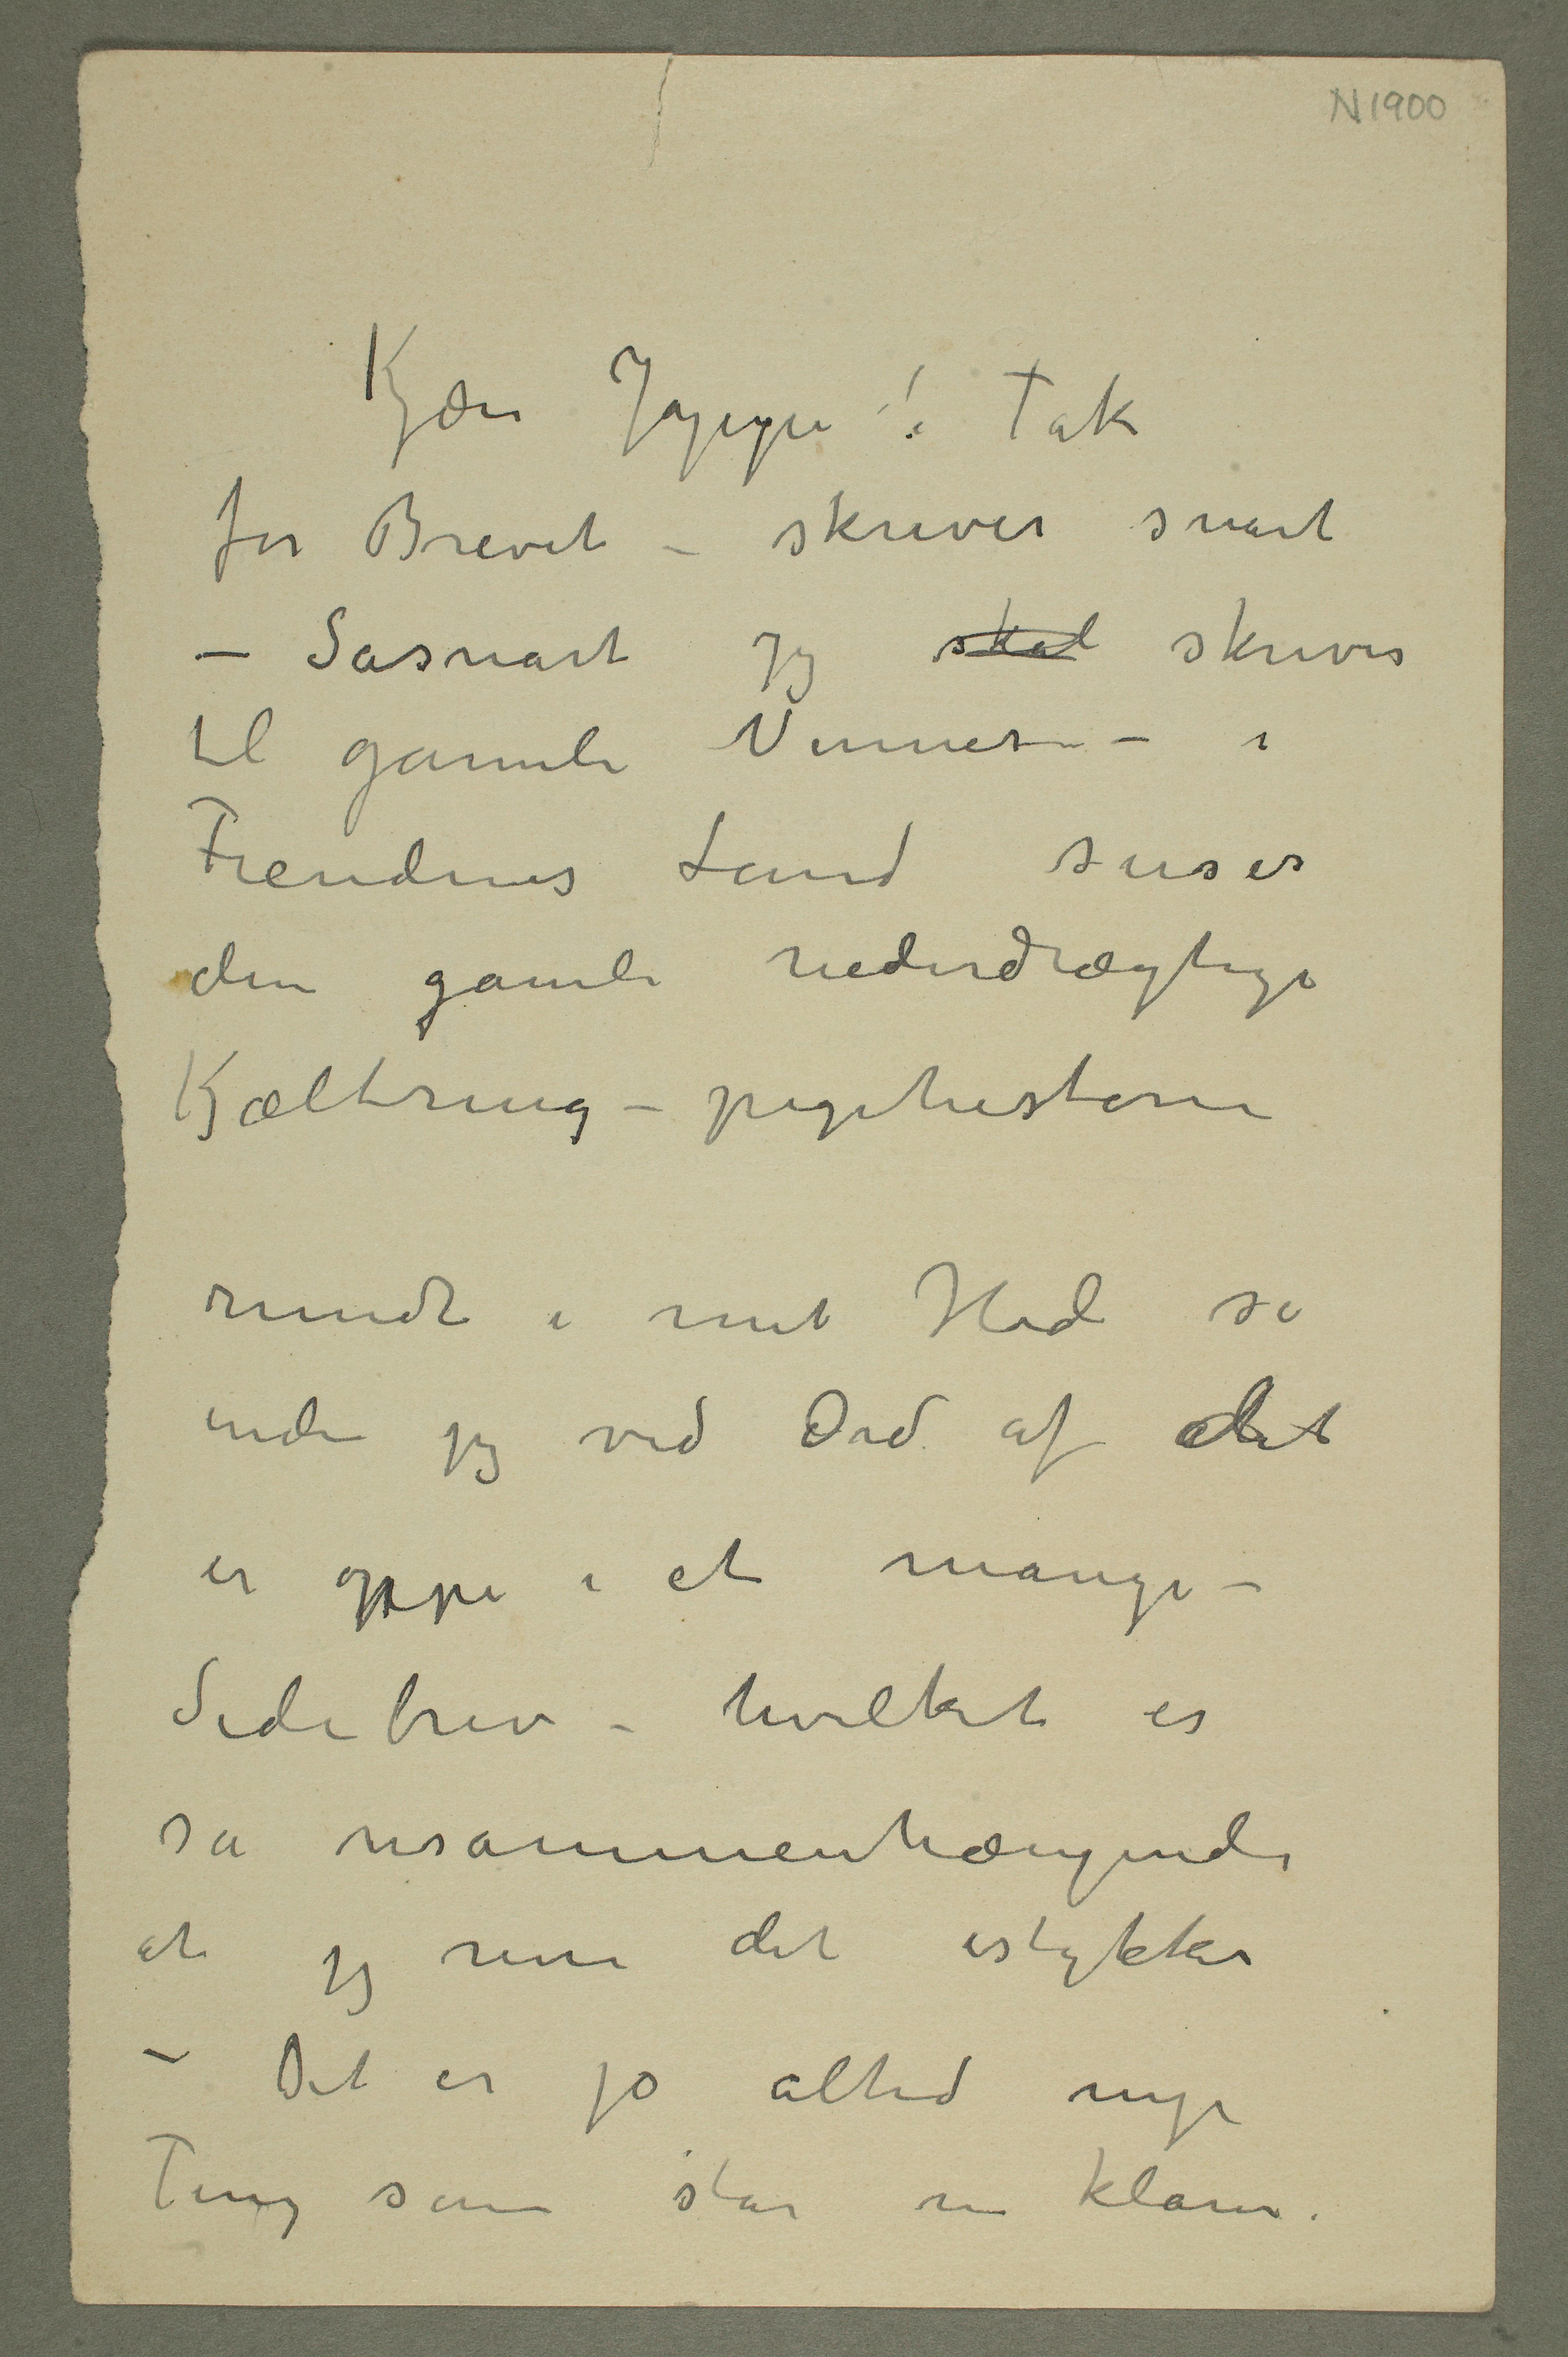 N 1900
Kjære Jappe! Tak
for Brevet – skriver snart
– Såsnart jeg skal skriver
til gamle Venner – i
Fiendernes Land suser
den gamle nederdrægtige
Kjæltring – pigehistorie
rundt i mit Hode så
inden jeg ved Ord af det
er oppe i et mange-
Sidebrev – hvilket er
så usammenhængende
at jeg river det istykker
– Det er jo altid nye
Ting som står en klare.